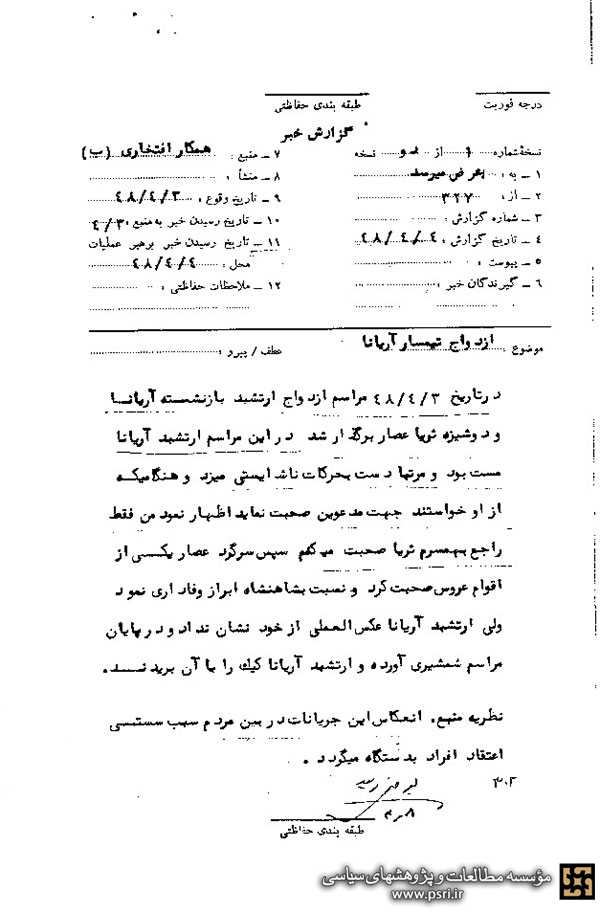 درجه فوریت
طبقه بندی حفاظتی
گزارش خبر
نسخهٔ شماره ۱ از نسخه
۱ ـ به : بعرض میرسد
۲ ـ از : ۳۲۷
۳ ـ شماره گزارش :
۴ ـ تاریخ گزارش : ۴۸/۴/۴
۵ ـ پیوست :
۶ ـ گیرندگان خبر :
۷ ـ منبع : همکار افتخاری (ب)
۸ ـ منشأ :
۹ ـ تاریخ وقوع : ۴۸/۴/۳
۱۰ ـ تاریخ رسیدن خبر به منبع : ۴/۳
۱۱ ـ تاریخ رسیدن خبر برهبر عملیات
محل : ۴۸/۴/۴
۱۲ ـ ملاحظات حفاظتی :
موضوع : ازدواج تیمسار آریانا
عطف / پیرو :
درتاریخ ۴۸/۴/۳ مراسم ازدواج ارتشبد بازنشسته آریانا
و دوشیزه ثریا عصار برگذار شد درابن مراسم ارتشبد آریانا
مست بود و مرتبا دست بحرکات ناشایستی میزد و هنگامیکه
از او خواستند جهت مدعوین صحبت نماید اظهار نمود من فقط
راجع بهمسرم ثریا صحبت میکنم سپس سرگرد عصار یکسی از
اقوام عروس صحبت کرد و نسبت بشاهنشاه ابراز وفاداری نمود
ولی ارتشبد آریانا عکس العملی از خود نشان نداد و در پایان
مراسم شمشیری آورده و ارتشبد آریانا کیک را با آن بریدند.
نظریه منبع. انعکاس این جریانات در بین مردم سبب سستسی
اعتقاد افراد بدستگاه میگردد.
بعرض رسید
۴/۸
۳۰۲
طبقه بندی حفاظتی
مؤسسه مطالعات و پژوهشهای سیاسی
www.psri.ir